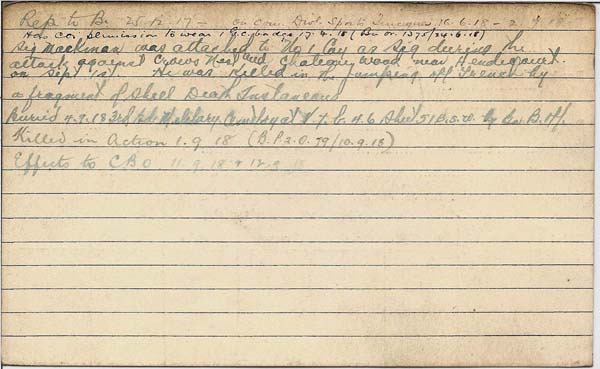 Rep to Bn 25.12.17 - on com. Div. Sports 16-6-18 - 2 18
Has CCI permission to wear 1 g.c. badge 17.4.18 (Bn Or. 1375/24.6.18)
Sig Mackman was attached to No 1 Coy as Sig during the
attack against Crows Nest and Chateau Wood near Hendecourt
on Sept 1st. He was killed in the jumping off trench by
a fragment of Shell Death Instantaneous
Buried 4.9.18 Military Cemetery at V.7.c.4.6 Sheet 51B.S.W. by Bn. H/.
Killed in Action 1.9.18 (B.P.2.O.79/10.9.18)
Effects to CBO 11.9.18 & 12.9.18